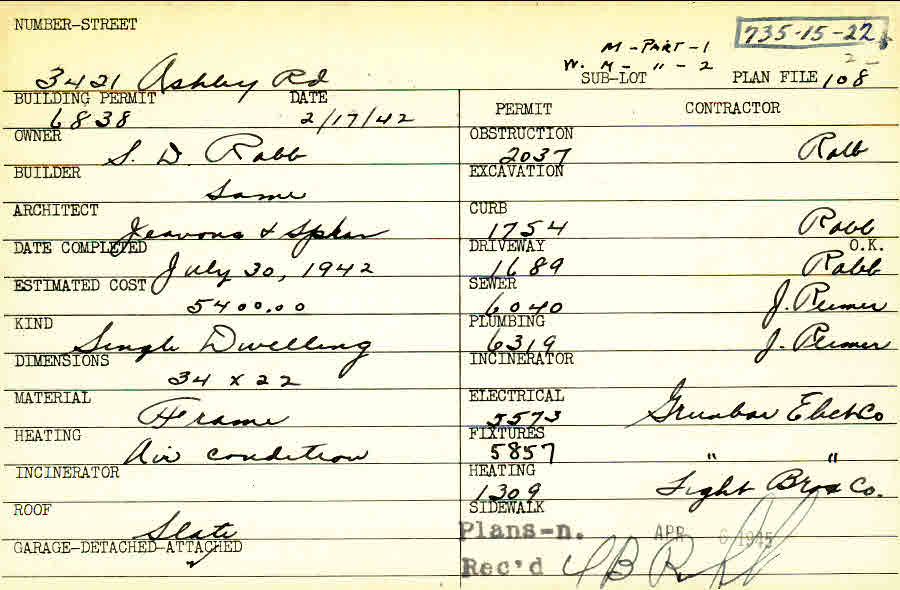 NUMBER-STREET
735-15-22
M-PART-1
W. M- " - 2
SUB-LOT
PLAN FILE 108
3421 Ashby Rd
BUILDING PERMIT DATE
6838 2/17/42
OWNER
S. D. Rabb
BUILDER
Same
ARCHITECT
Jeavons & Spahr
DATE COMPLETED
July 30, 1942
ESTIMATED COST
5400.00
KIND
Single Dwelling
DIMENSIONS
34 x 22
MATERIAL
Frame
HEATING
Air condition
INCINERATOR
ROOF
Slate
GARAGE-DETACHED-ATTACHED
PERMIT CONTRACTOR
OBSTRUCTION
2037 Rabb
EXCAVATION
CURB
1754 Rabb
DRIVEWAY O.K.
1689 Rabb
SEWER
6040 J.
PLUMBING
6319 J.
INCINERATOR
ELECTRICAL
5573 Elect Co
FIXTURES
5857 " "
HEATING
1309 Bros Co.
SIDEWALK
Plans-n. APR 6 1945
Rec'd